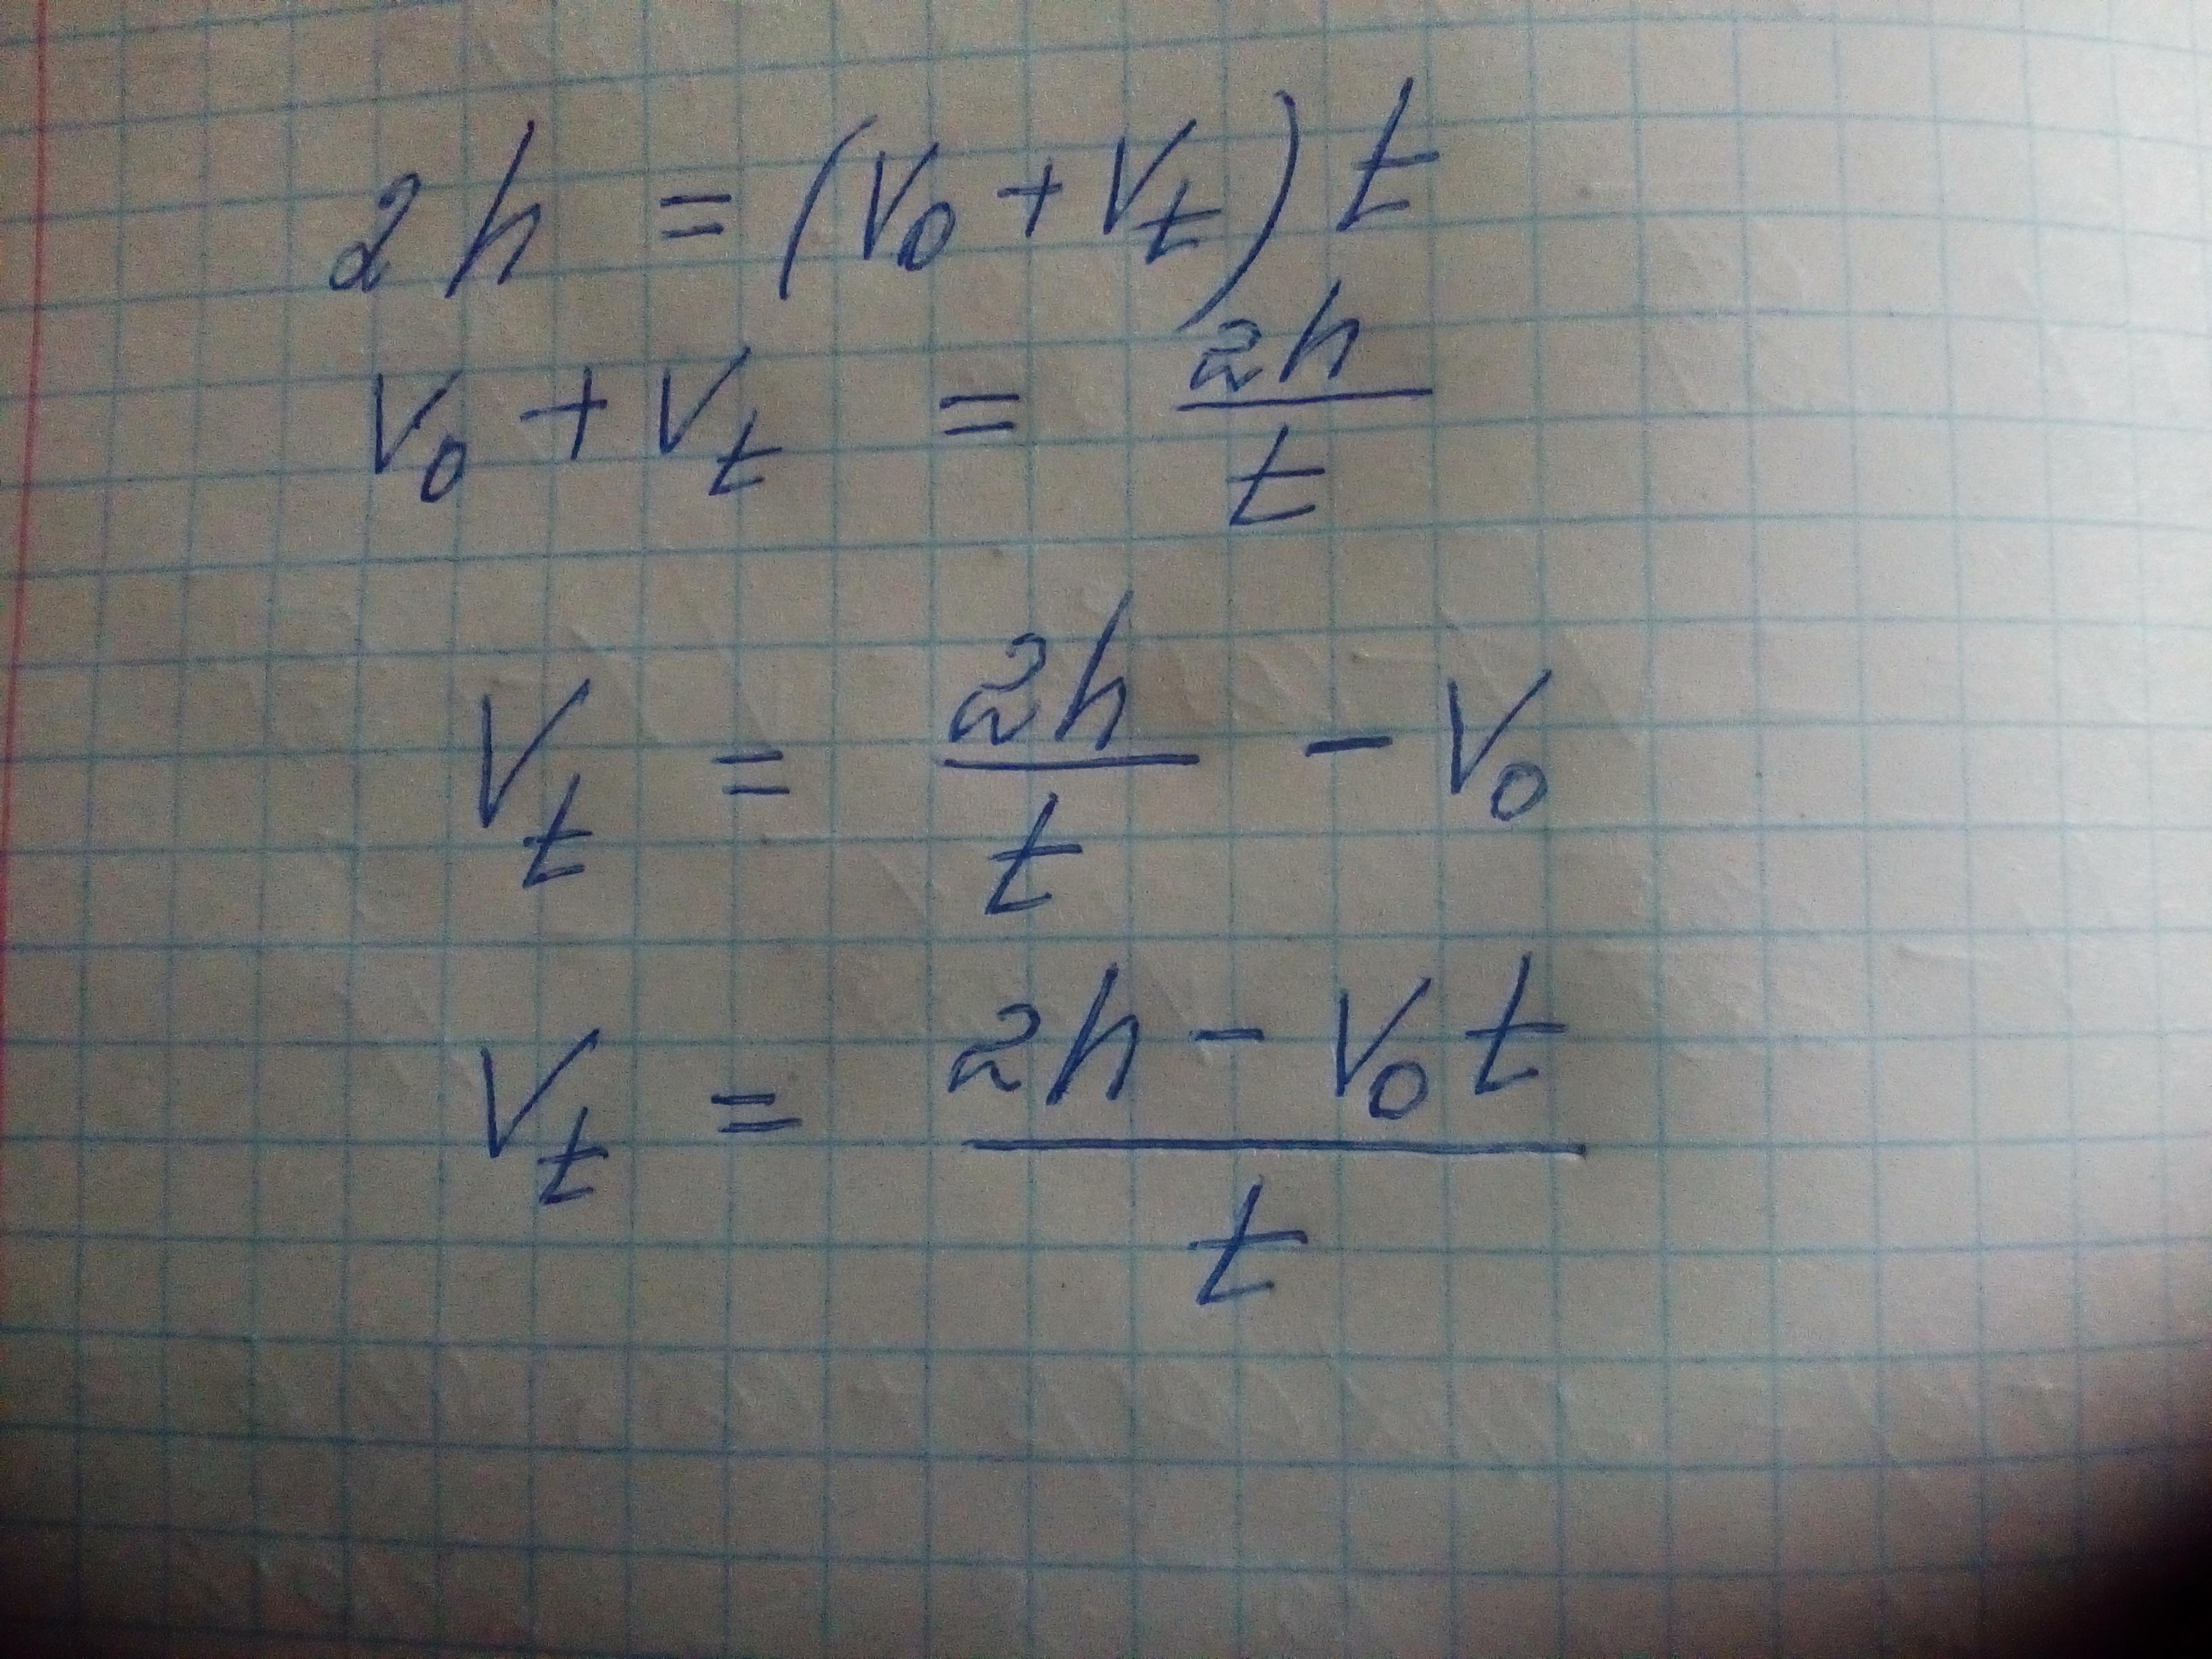 2h = (V₀ + Vₜ) t
V₀ + Vₜ = 2h/t
Vₜ = 2h/t - V₀
Vₜ = (2h - V₀t)/t